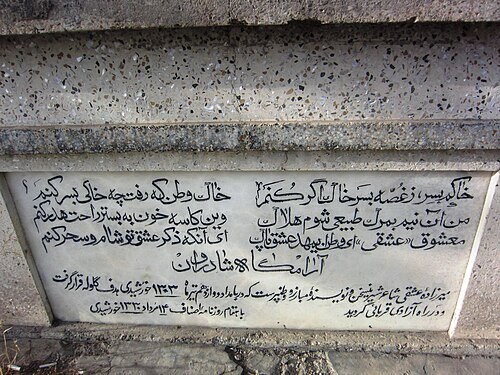 خاکم بسر، زغصه بسر خاک اگر کنم خاک وطن که رفت چه خاکی بسر کنم؟
من آن نیم بمرگ طبیعی شوم هلاک وین کاسه خون به بستر راحت هدر کنم
معشوق «عشقی» ای وطن ایمهد عشق پاک ای آنکه ذکر عشق تو شام و سحر کنم
آرامگاه شادروان
میرزاده عشقی شاعر شیرین سخن و نویسندهٔ مبارز و وطنپرست که در بامداد دوازدهم تیرماه ۱۳۰۳ خورشیدی هدف گلوله قرار گرفت
و در راه آزادی قربانی گردید باهتمام روزنامه اصناف مرداد خورشیدی